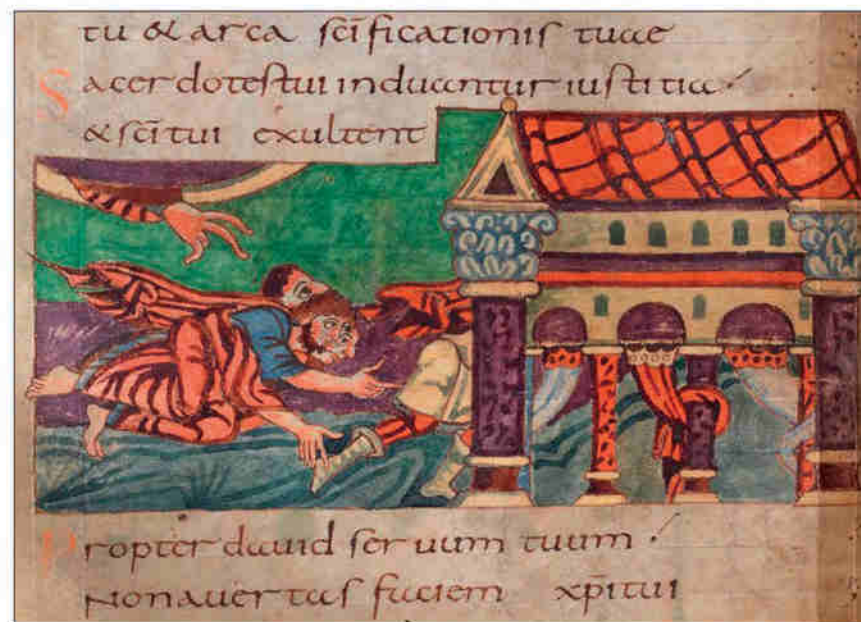 tu & arca scīficationis tuae
Sacerdotes tui induantur iustitia
& scī tui exultent
Propter dauid seruum tuum
Non auertas faciem xp̄i tui